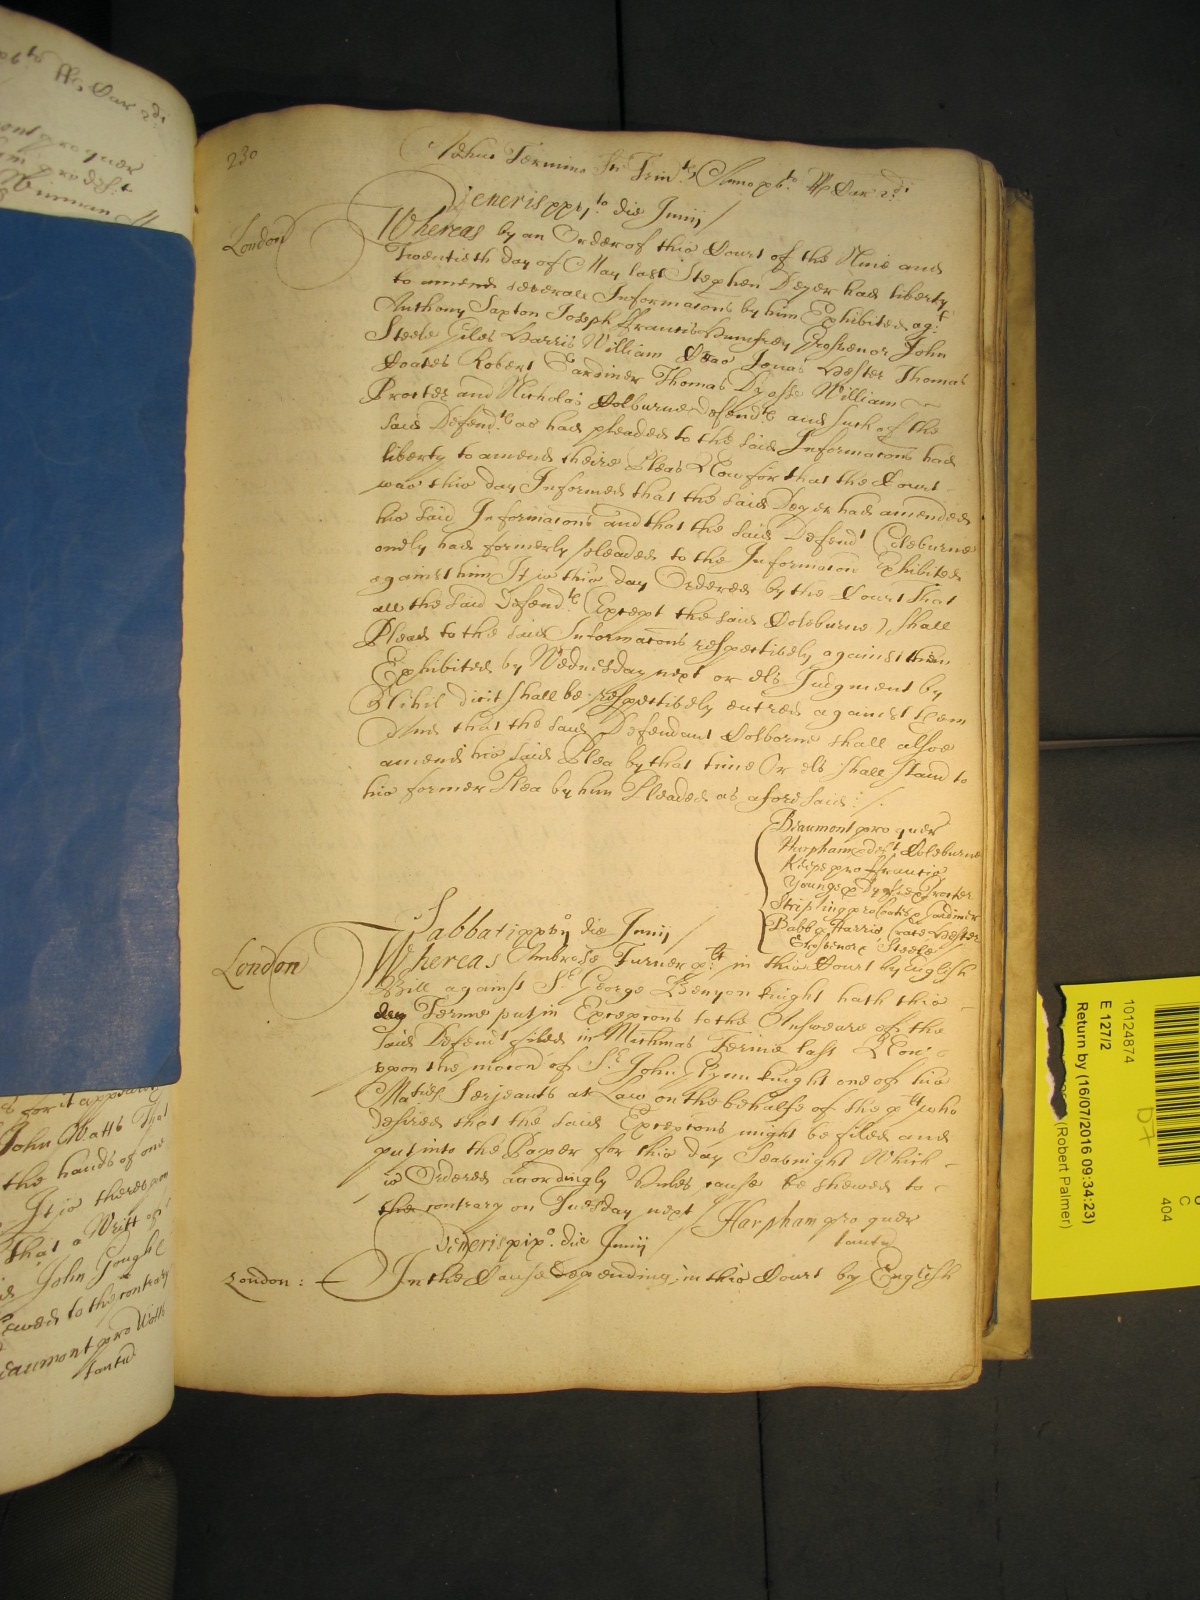 230
Adhuc Termino Ste Trin:tis Anno xvto RRs Car 2di
Veneris xxvjto die Junij
London
Whereas by an Order of this Court of the Nine and
Twentieth day of May last Stephen Deyer had liberty
to amend severall Informacons by him Exhibited agt
Anthony Saxton Joseph Francis Humfrey Grosvenor John
Steele Giles Harris William Jonas Hester Thomas
Coates Robert Gardiner Thomas Dyose William
Procter and Nicholas Colburne Defendts and such of the
said Defendts as had pleaded to the said Informacons had
liberty to amend theire Pleas Now for that the Court
was this day Informed that the said Deyer had amended
his said Informacons and that the said Defendt Coleburne
onely had formerly pleaded to the Informacon Exhibited
against him It is this day Ordered by the Court That
all the said Defendts (Except the said Coleburne) shall
Plead to the said Informacons respectively against them
Exhibited by Wednesday next or els Judgment by
Nihil dicit shall be respectively entred against them
And that the said Defendant Colborne shall alsoe
amend his said Plea by that time Or els shall stand to
his former Plea by him Pleaded as aforesaid:/.
Beaumont pro quer
Harpham p deft Coleburne
Keipe pro Francis
Younge p Dyose p Procter
Stripling pro Coates p Gardiner
Babb p Harris Hester
Grosvenor & Steele
Sabbati xxvij die Junij
London
Whereas Ambrose Turner plt in this Court by English
Bill against Sr George Benyon knight hath this
Terme put in Excepcons to the Answeare of the
said Defendt filed in Michmas Terme last Now
upon the mocon of Sr John Glynn knight one of his
Maties Serjeants at Law on the behalfe of the plt who
desired that the said Excepcons might be filed and
put into the Paper for this day Seavnight Which
is Ordered accordingly Unles cause be shewed to
the contrary on Tuesday next / Harpham pro quer
tantu
Veneris xixo die Junij
London:
In the Cause depending in this Court by English
John Watts That
the hands of one
It is therevpon
that a Writt of
John Gough
shewed to the contrary
Beaumont pro Watts
tantu
10124874
E 127/2
Return by (16/07/2016 09:34:23)
(Robert Palmer)
D7
C
404